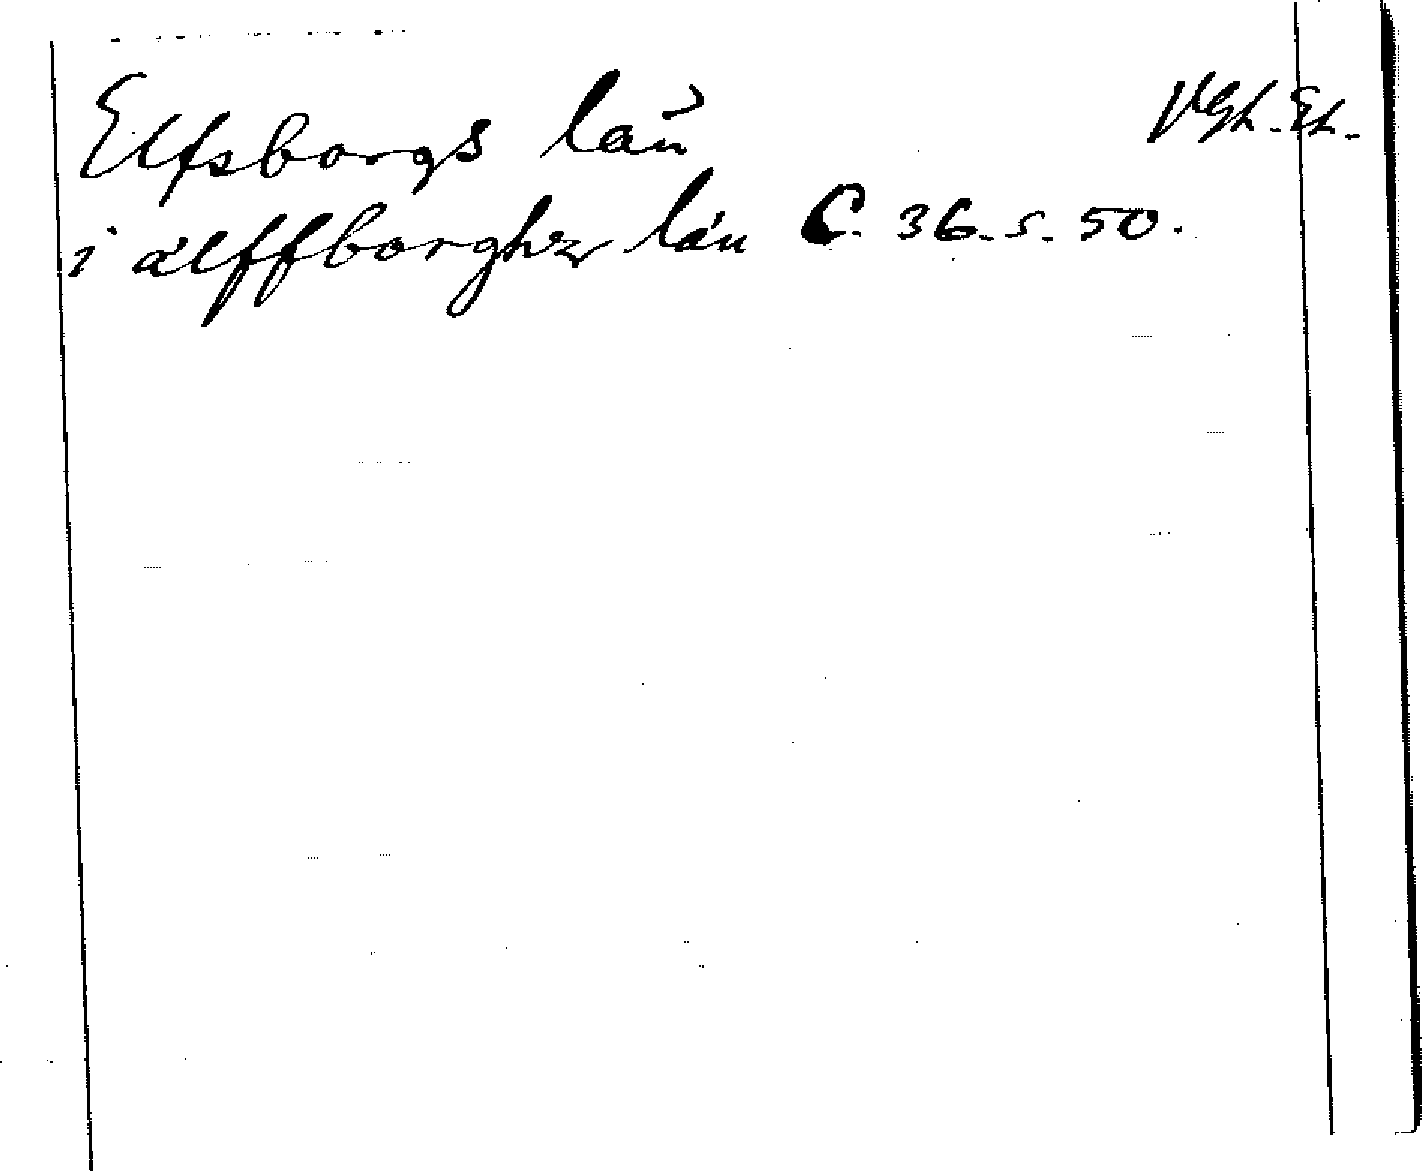 Elfsborgs län Vgl. El.
i ælffborghx län C. 36. s. 50.